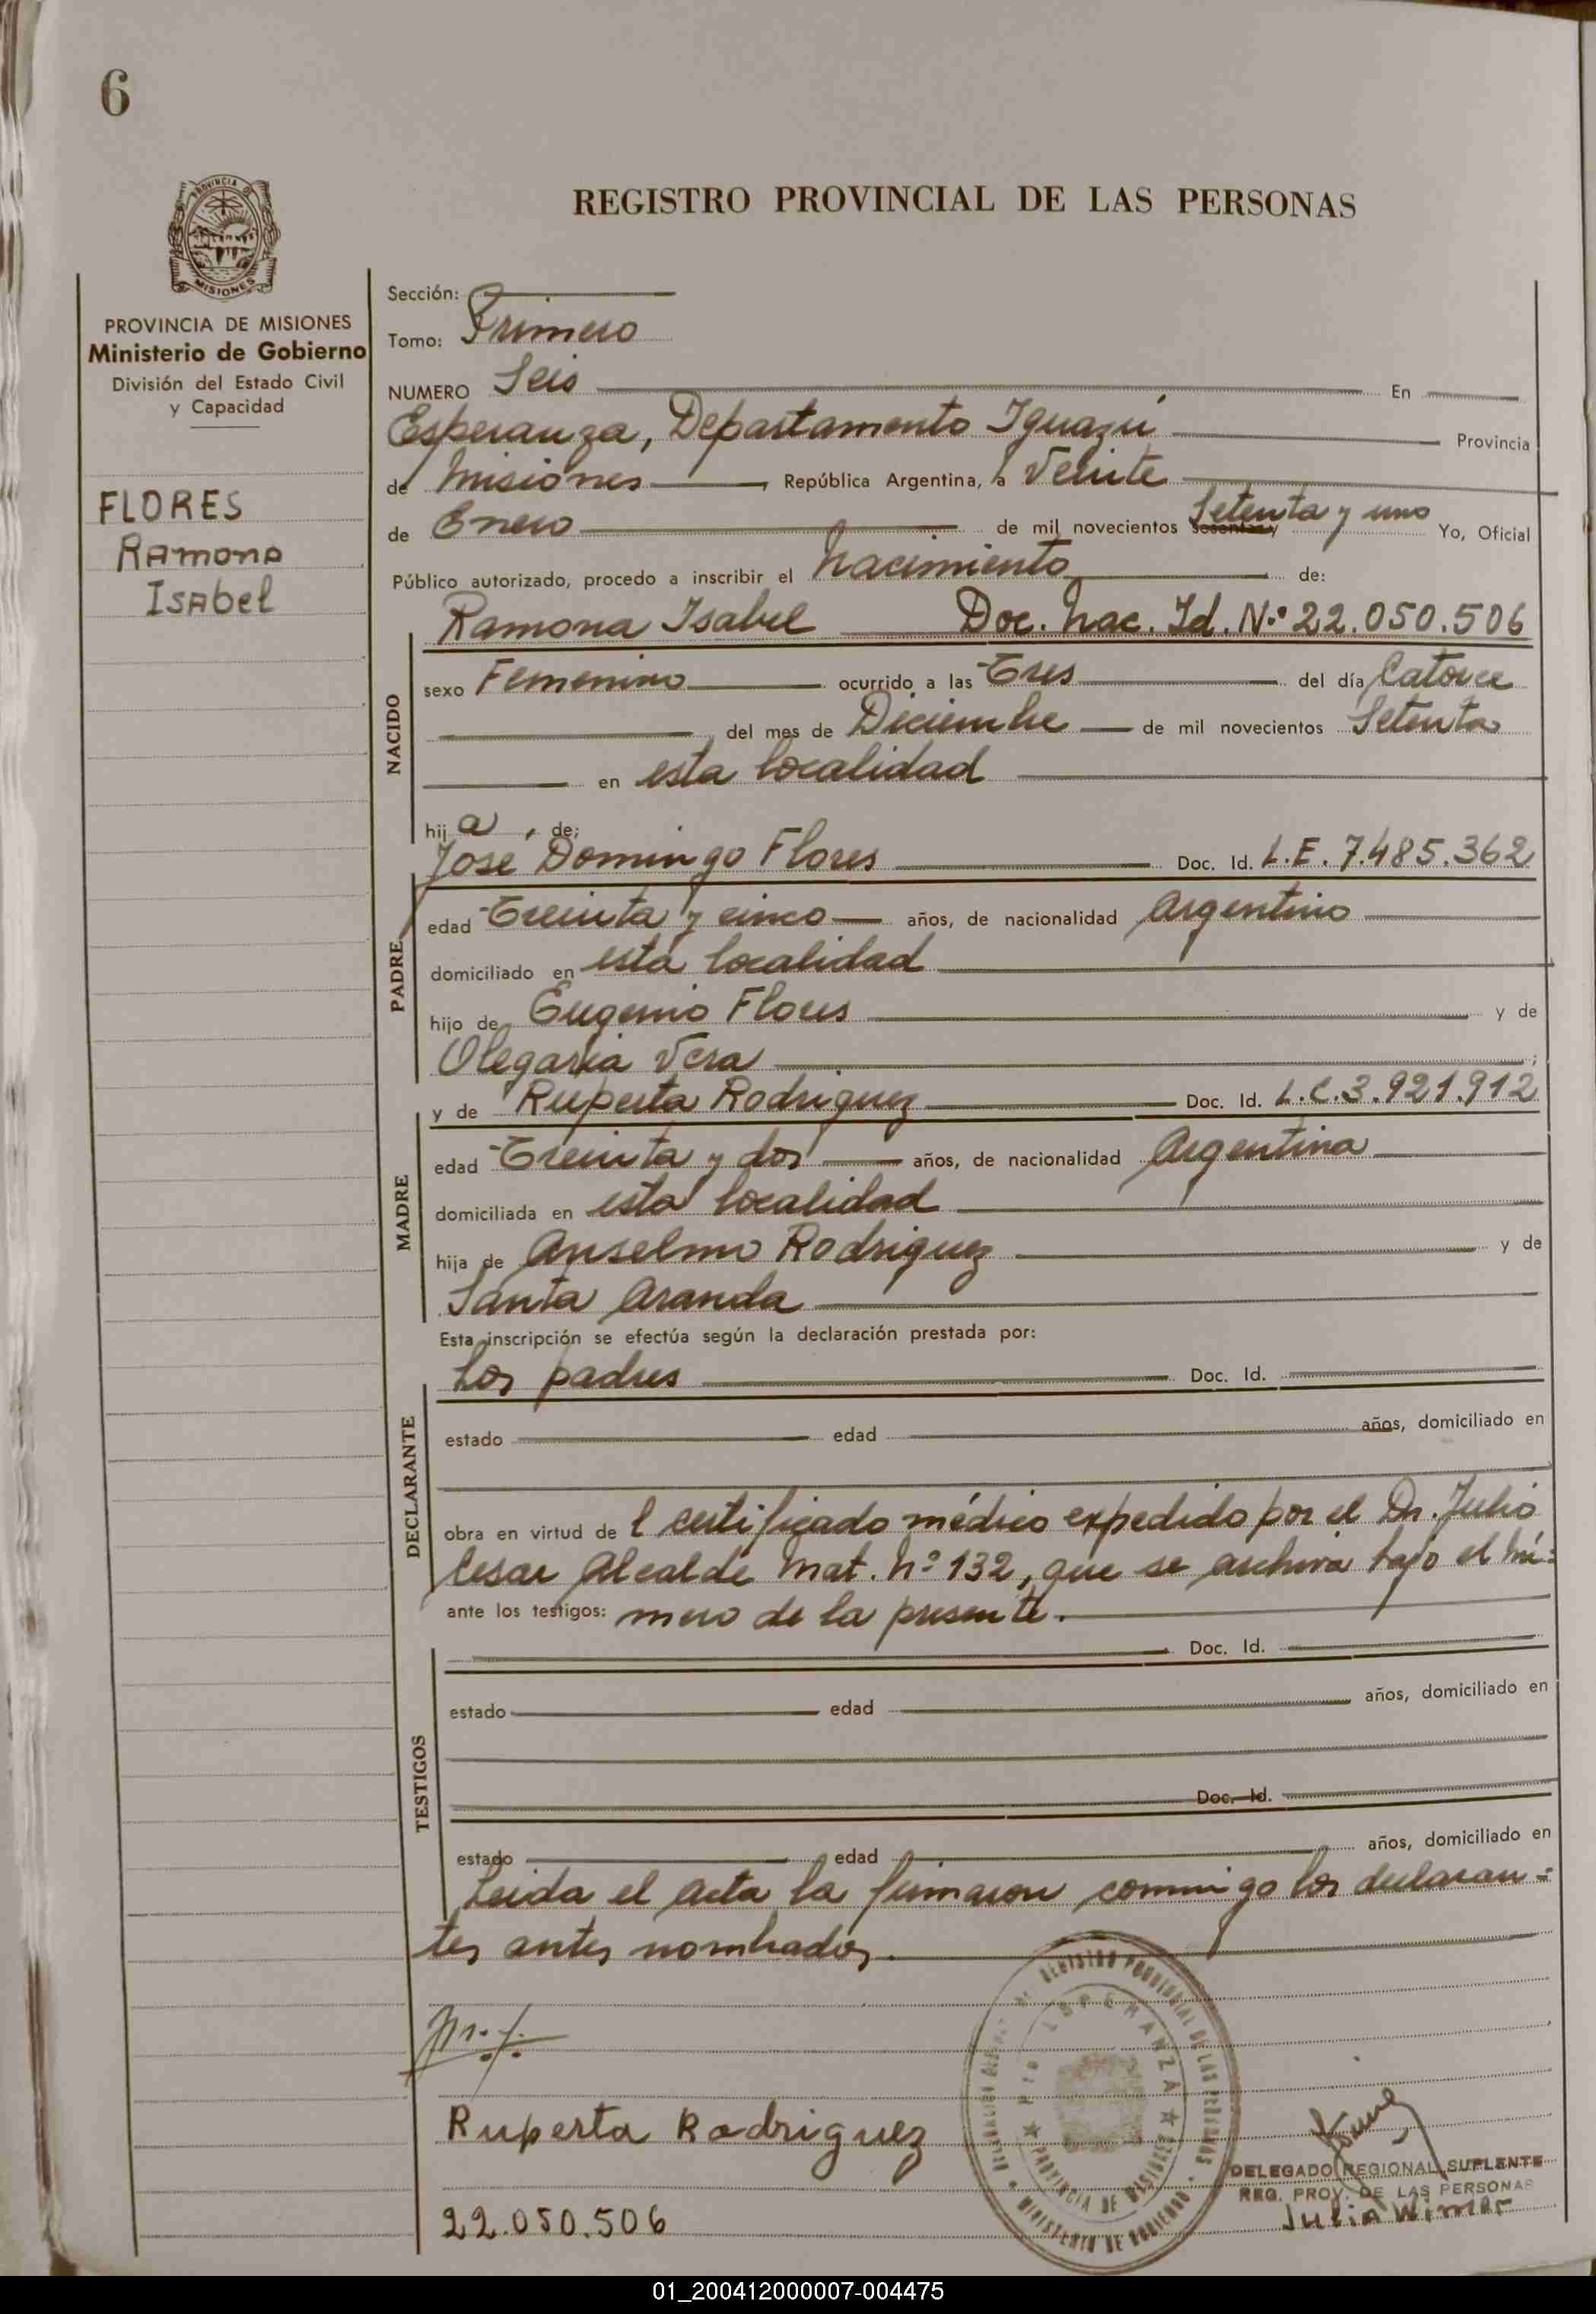 6
REGISTRO PROVINCIAL DE LAS PERSONAS
PROVINCIA DE MISIONES
PROVINCIA DE MISIONES
Ministerio de Gobierno
División del Estado Civil
y Capacidad
FLORES
Ramona
Isabel
Sección:
Tomo: Primero
NUMERO Seis En
Esperanza, Departamento Iguazú Provincia
de Misiones, República Argentina, a Veinte
de Enero de mil novecientos sesenta y Setenta y uno Yo, Oficial
Público autorizado, procedo a inscribir el Nacimiento de:
Ramona Isabel Doc. Nac. Id. Nº 22.050.506
NACIDO
sexo Femenino ocurrido a las Tres del día Catorce
del mes de Diciembre de mil novecientos Setenta
en esta localidad
hij a, de:
José Domingo Flores Doc. Id. L.E. 7.485.362
PADRE
edad Treinta y cinco años, de nacionalidad Argentino
domiciliado en esta localidad
hijo de Eugenio Flores y de
Olegaria Vera ;
y de Ruperta Rodriguez Doc. Id. L.C. 3.921.912
MADRE
edad Treinta y dos años, de nacionalidad Argentina
domiciliada en esta localidad
hija de Anselmo Rodriguez y de
Santa Aranda
Esta inscripción se efectúa según la declaración prestada por:
Los padres Doc. Id.
DECLARANTE
estado edad años, domiciliado en
obra en virtud de l certificado médico expedido por el Dr. Julio
Cesar Alcalde Mat. Nº 132, que se archiva bajo el nú=
ante los testigos: mero de la presente.
Doc. Id.
TESTIGOS
estado edad años, domiciliado en
Doc. Id.
estado edad años, domiciliado en
Leida el acta la firmaron conmigo los declaran=
tes antes nombrados.
Ruperta Rodriguez
22.050.506
REGISTRO PROVINCIAL DE LAS PERSONAS
ESPERANZA
PROVINCIA DE MISIONES
MINISTERIO DE GOBIERNO
DELEGADO REGIONAL SUPLENTE
REG. PROV. DE LAS PERSONAS
Julia Wimer
01_200412000007-004475